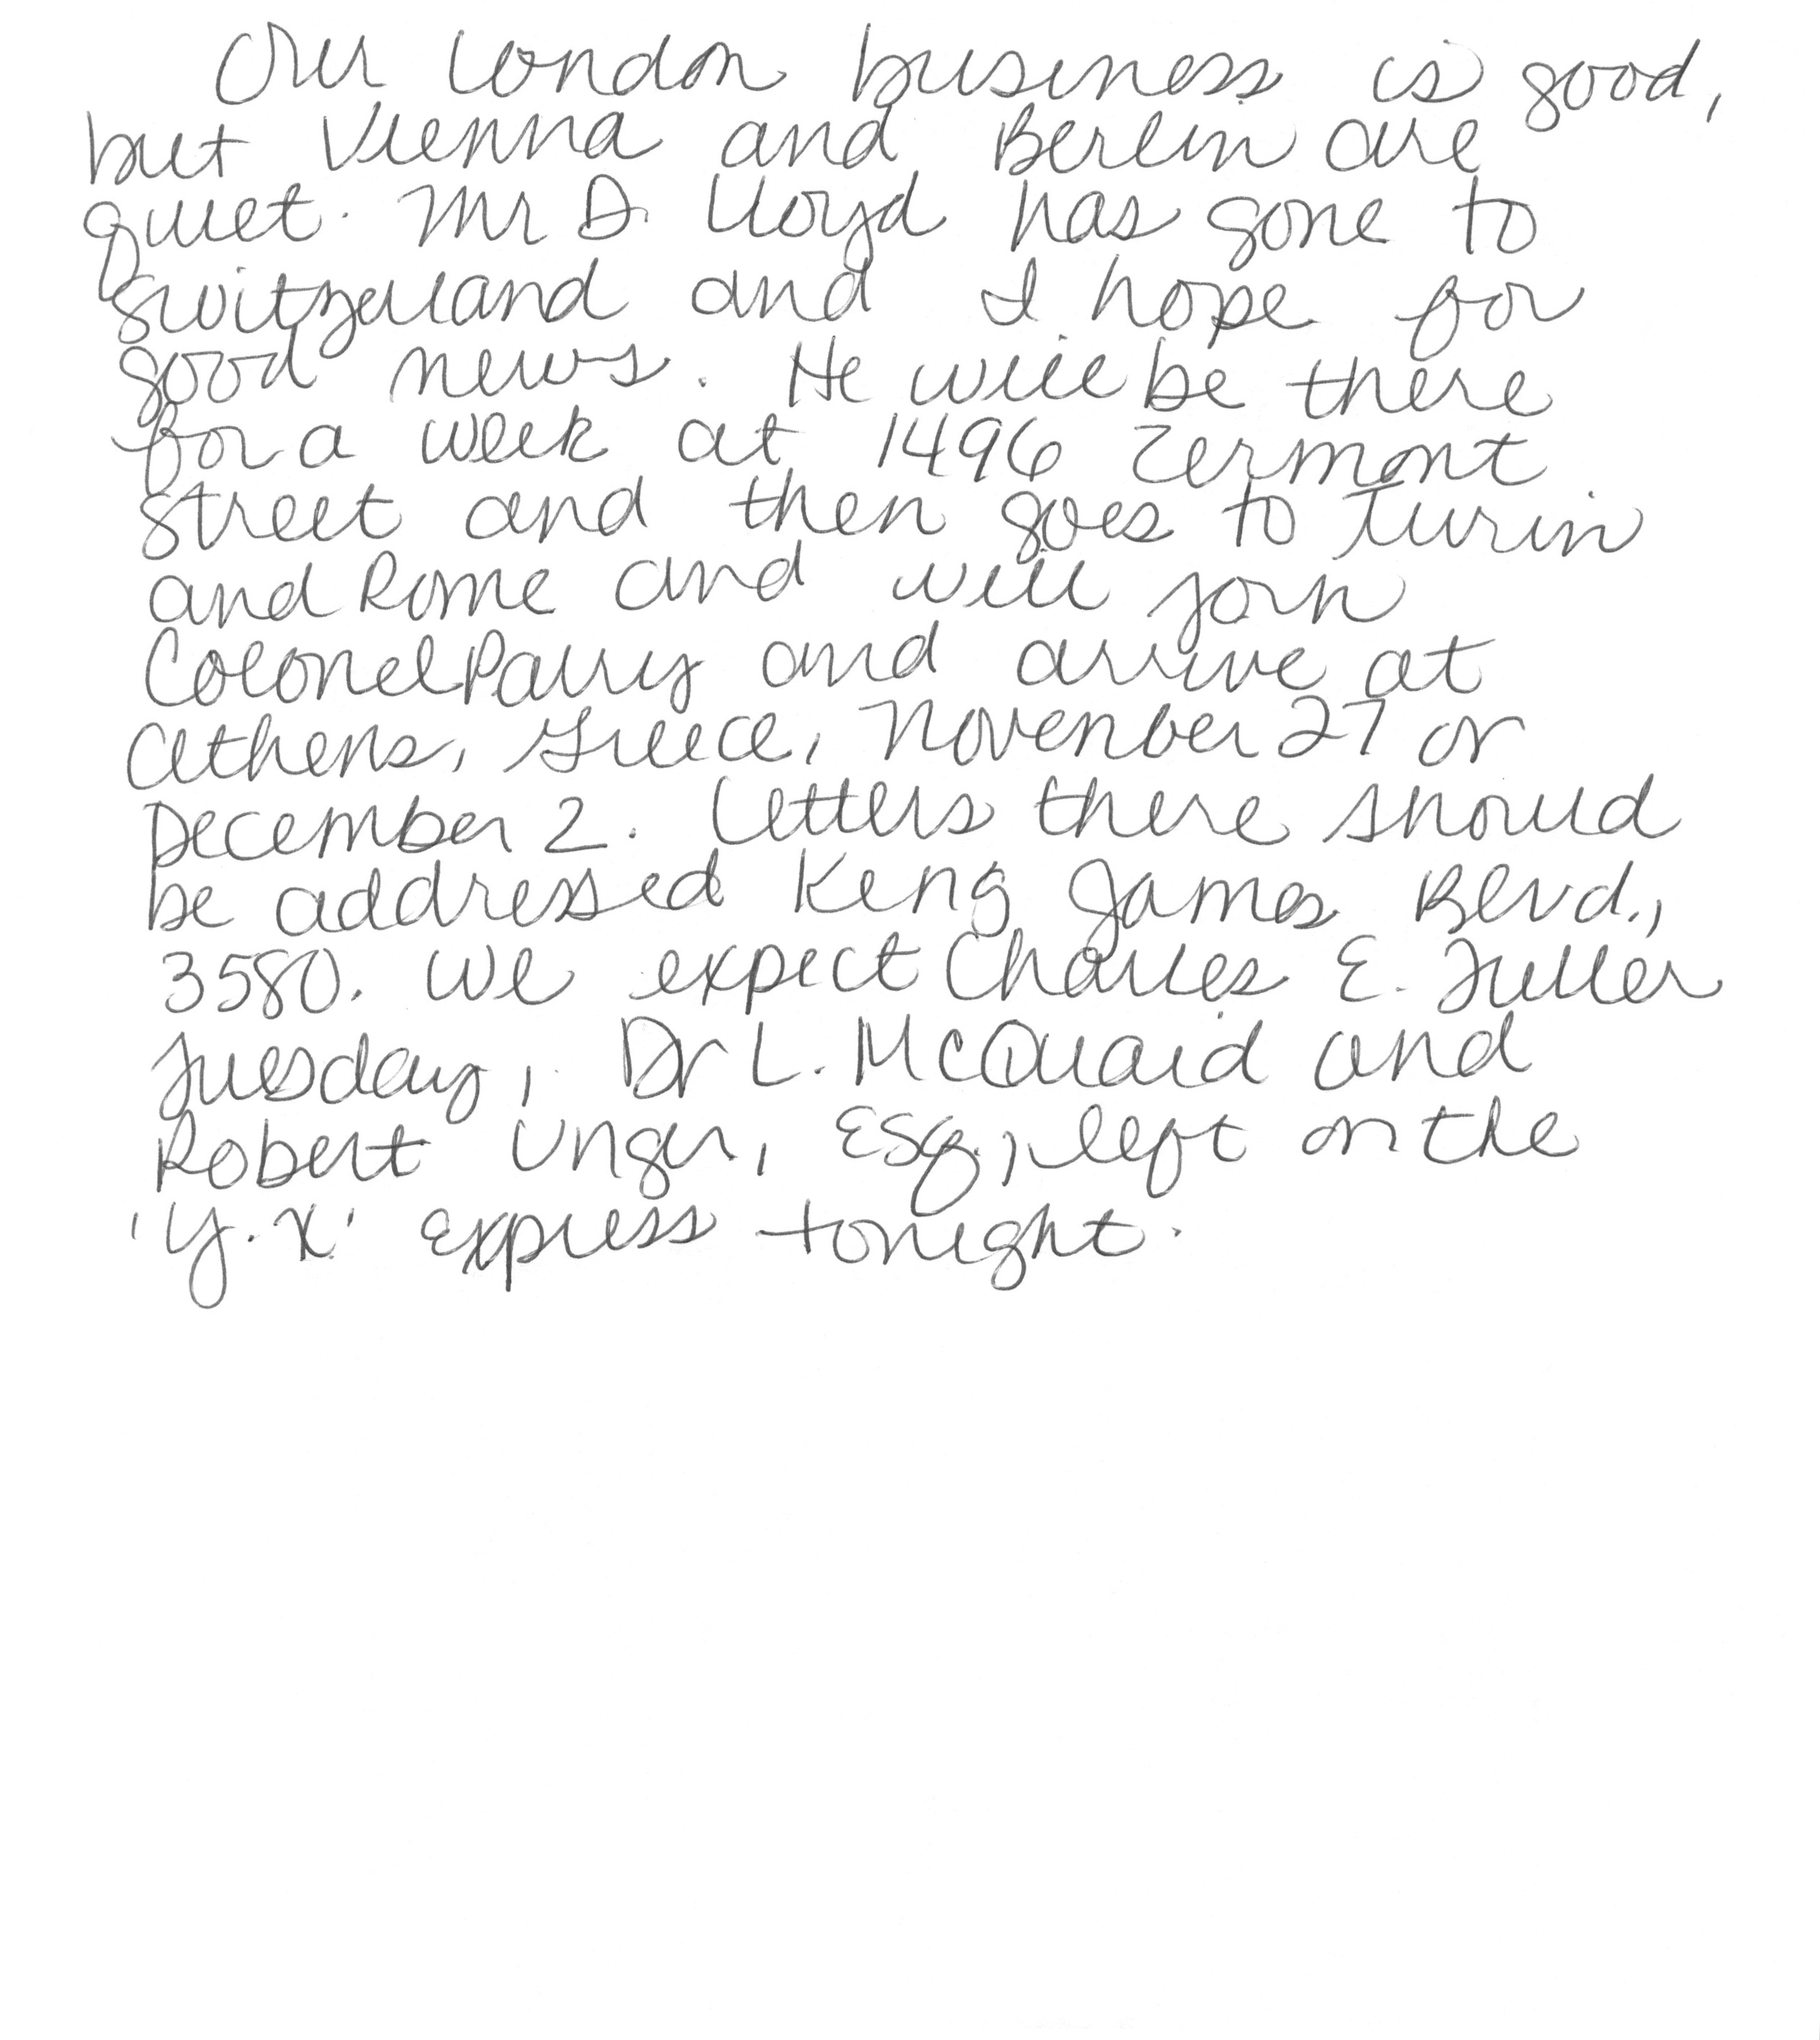 Our London business is good,
but Vienna and Berlin are
quiet. Mr D. Lloyd has gone to
Switzerland and I hope for
good news. He will be there
for a week at 1496 Zermont
Street and then goes to Turin
and Rome and will join
Colonel Parry and arrive at
Athens, Greece, November 27 or
December 2. Letters there should
be addressed King James Blvd.,
3580. We expect Charles E. Fuller
Tuesday, Dr L. McQuaid and
Robert Unger, Esq., left on the
'Y.X.' express tonight.